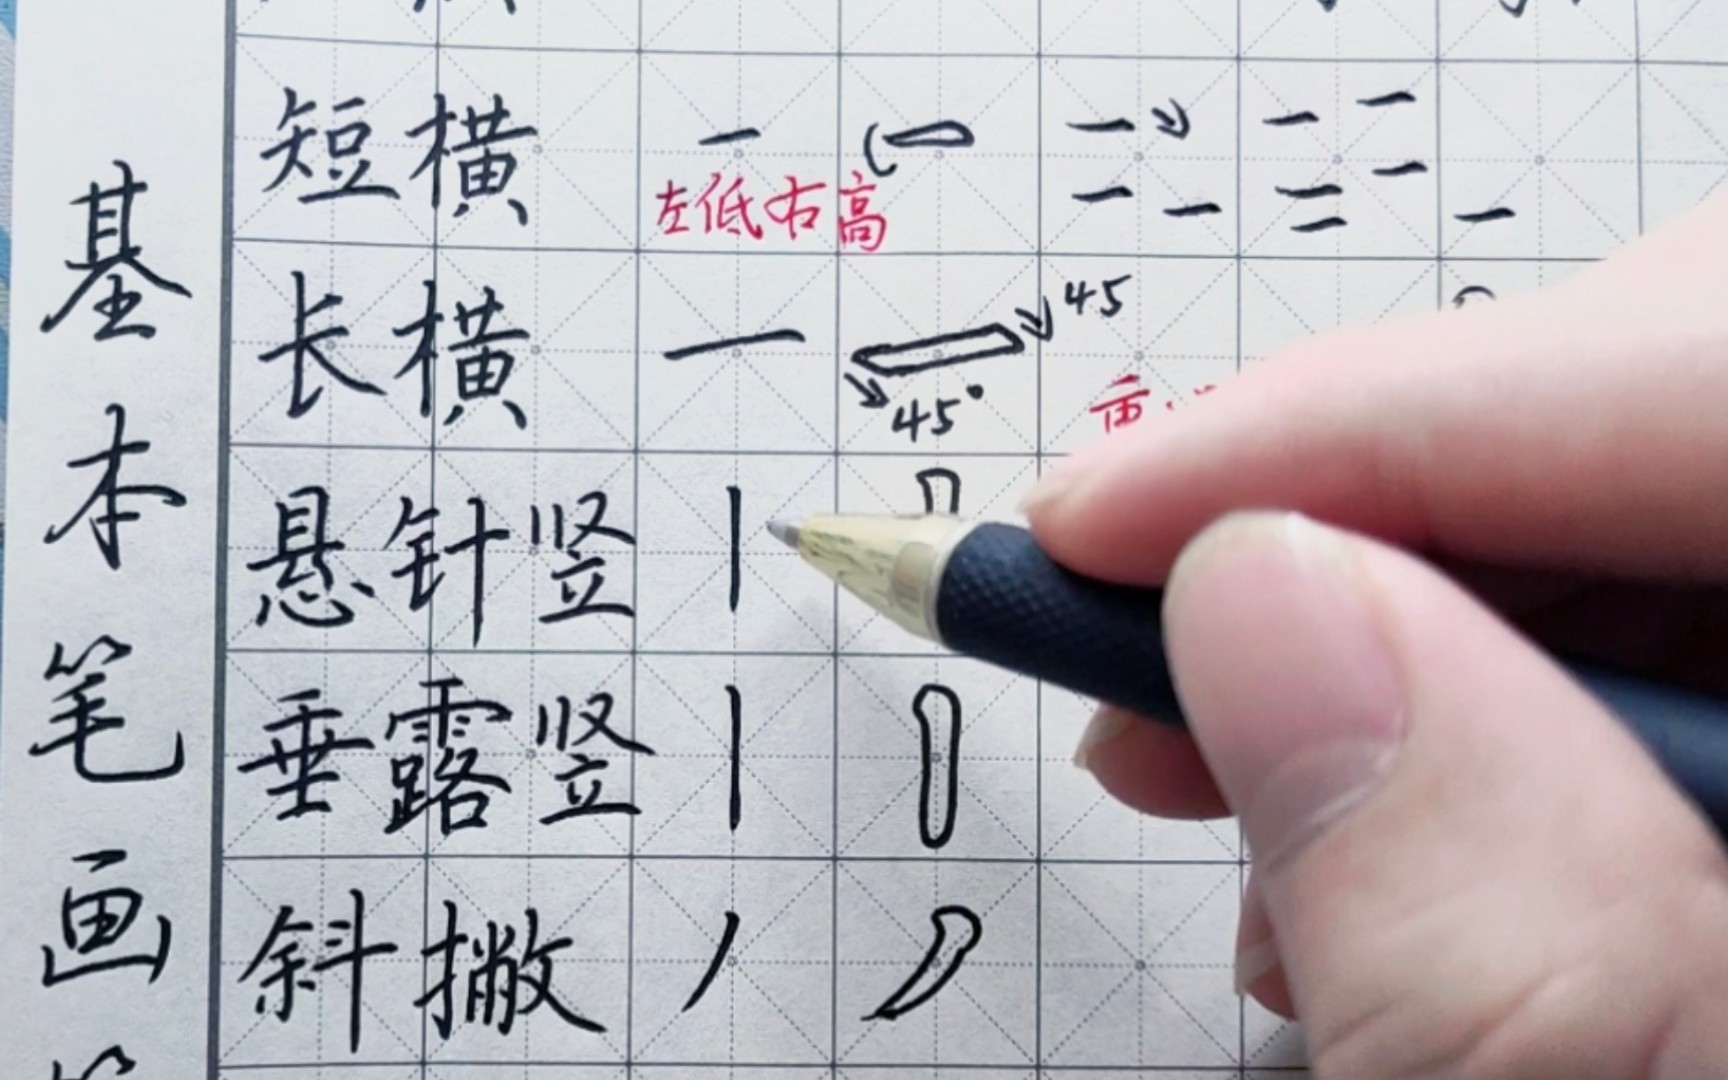 基本笔画
短横
左低右高
长横
45
45°
悬针竖
垂露竖
斜撇